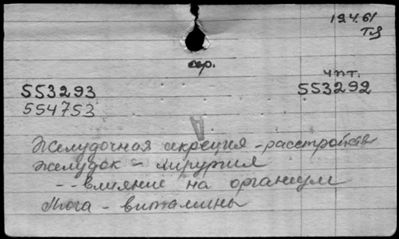 124.61
хр.
чпт.
553293 553292
554753
Желудочная секреция - расстройства
Желудок - хирургия
- - влияние на организм
Йога - витамины